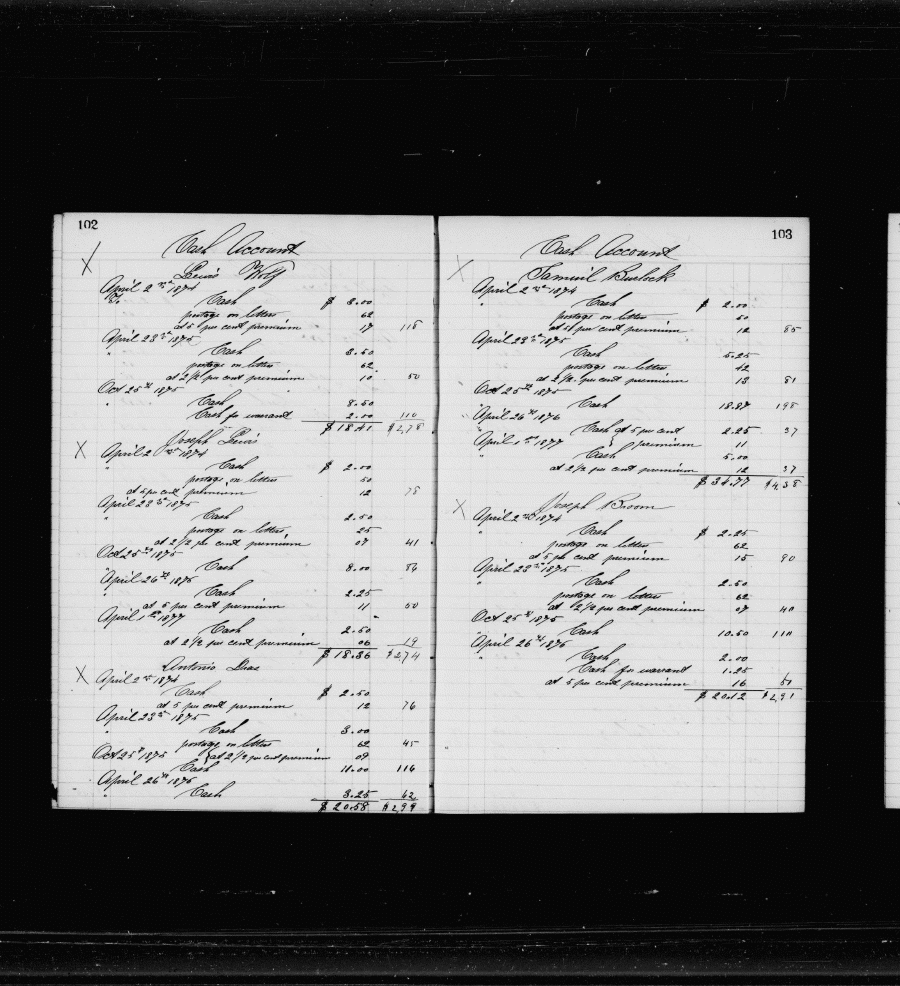 102
Cash Account
Lewis Wolf
April 2nd 1874
To Cash $ 3.00
postage on letters 62
at 5 per cent premium 17 118
April 23rd 1875
" Cash 3.50
postage on letters 62
at 2 1/2 per cent premium 10 50
Oct 25th 1875
" Cash 8.50
Cash for warrant 2.00 110
$ 18.41 $2,78
Joseph Lewis
April 2nd 1874
" Cash $ 2.00
postage on letters 50
at 5 per cent premium 12 78
April 23rd 1875
" Cash 2.50
postage on letters 25
at 2 1/2 per cent premium 07 41
Oct 25th 1875
" Cash 8.00 86
April 26th 1876
" Cash 2.25
at 5 per cent premium 11 50
April 1st 1877
" Cash 2.50
at 2 1/2 per cent premium 06 19
$ 18.36 $2,74
Antonio Dias
April 2nd 1874
" Cash $ 2.50
at 5 per cent premium 12 76
April 23rd 1875
" Cash 3.00
postage on letters 62 45
Oct 25th 1875 { at 2 1/2 per cent premium 09
Cash 11.00 116
April 26th 1876
" Cash 3.25 62
$ 20.58 $2,99
103
Cash Account
Samuel Burlock
April 2nd 1874
" Cash $ 2.00
postage on letters 50
at 5 per cent premium 12 85
April 23rd 1875
" Cash 5.25
postage on letters 42
at 2 1/2 per cent premium 13 81
Oct 25th 1875
" Cash 18.87 198
April 26th 1876
" Cash at 5 per cent 2.25 37
April 1st 1877 { premium 11
" Cash 5.00
at 2 1/2 per cent premium 12 37
$ 34.77 $4,38
Joseph Broom
April 2nd 1874
" Cash $ 2.25
postage on letters 62
at 5 per cent premium 15 90
April 23rd 1875
" Cash 2.50
postage on letters 62
at 2 1/2 per cent premium 07 40
Oct 25th 1875
" Cash 10.50 110
April 26th 1876
" Cash 2.00
Cash for warrant 1.25
at 5 per cent premium 16 51
$ 20.12 $2,91